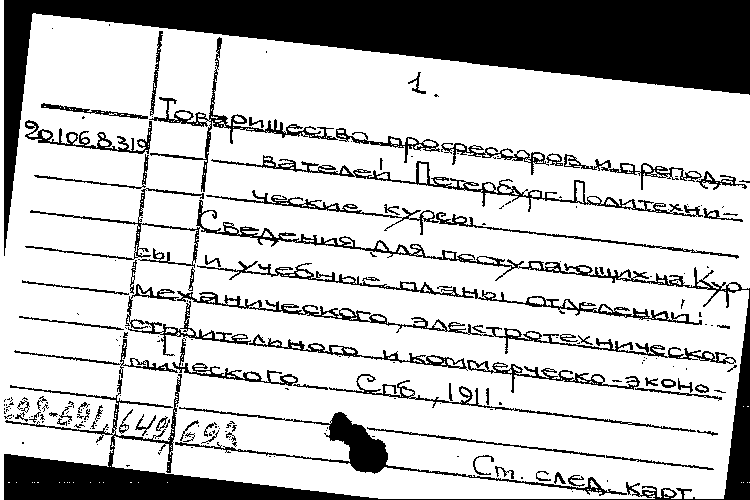 1.
Товарищество профессоров и препода-
20.106.8.319
вателей Петербург. Политехни-
ческие курсы.
Сведения для поступающих на Кур
сы и учебные планы отделений:
механического, электротехнического,
строительного и коммерческо-эконо-
мического. Спб., 1911.
228-691, 649, 693
См. след. карт.